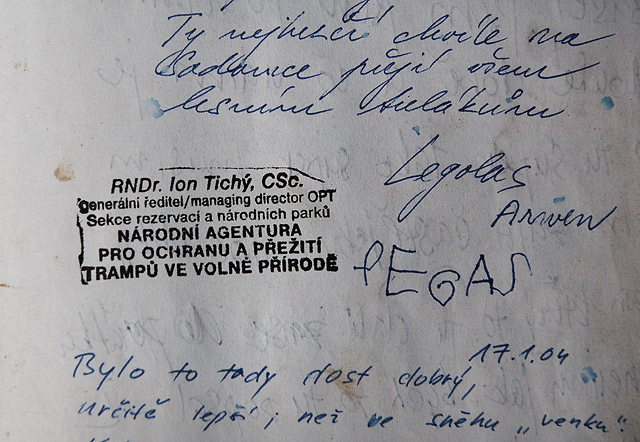 Ty nejhezčí chvíle na
Sadance přejí všem
lesním tulákům
Legolas
Arwen
PEGAS
RNDr. Ion Tichý, CSc.
Generální ředitel/managing director OPT
Sekce rezervací a národních parků
NÁRODNÍ AGENTURA
PRO OCHRANU A PŘEŽITÍ
TRAMPŮ VE VOLNÉ PŘÍRODĚ
17.1.04
Bylo to tady dost dobrý,
určitě lepší, než ve sněhu „venku“.